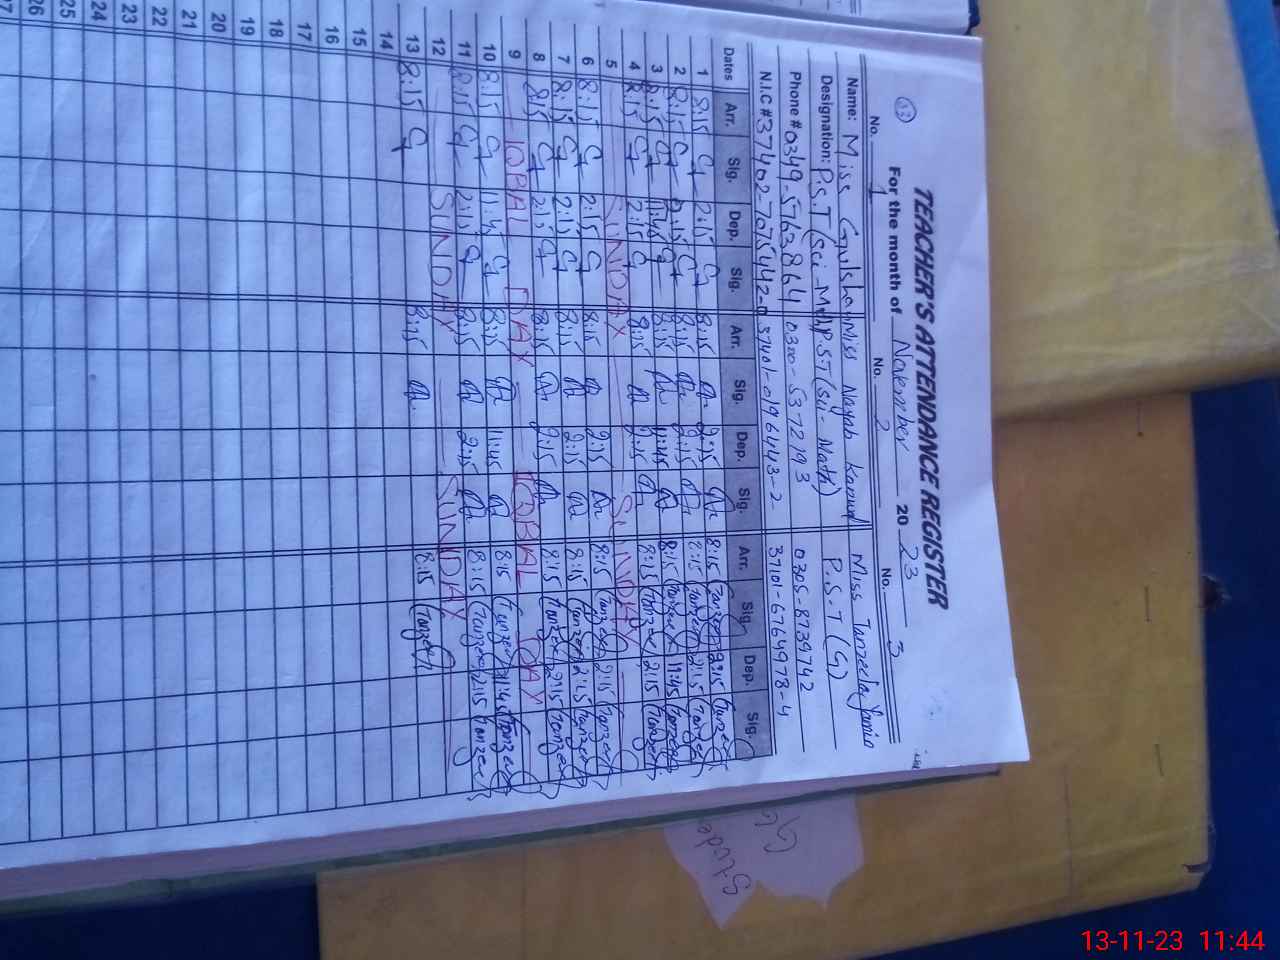 TEACHER'S ATTENDANCE REGISTER
For the month of November 2023
No. 1 No. 2 No. 3
Name: Miss Gulshan Miss Nayab Kanwal Miss Tanzeela
Designation: P.S.T (Sci-Math) P.S.T (Sci-Math) P.S.T (G)
Phone # 0349-5763864 0300-5372193 0305-8739742
N.I.C # 37402-7075442- 37401-0196443-2 37101-6764978-4
Dates Arr. Sig. Dep. Sig. Arr. Sig. Dep. Sig. Arr. Sig. Dep. Sig.
1 8:15 2:15 8:15 2:15 8:15 2:15
2 8:15 2:15 8:15 2:15 8:15 2:15
3 8:15 11:45 8:15 11:45 8:15 11:45
4 8:15 2:15 8:15 2:15 8:15 2:15
5 SUNDAY SUNDAY
6 8:15 2:15 8:15 2:15 8:15 2:15
7 8:15 2:15 8:15 2:15 8:15 2:15
8 8:15 2:15 8:15 2:15 8:15 2:15
9 IQBAL DAY IQBAL DAY
10 8:15 11:45 8:15 11:45 8:15 11:45
11 8:15 2:15 8:15 2:15 8:15 2:15
12 SUNDAY SUNDAY
13 8:15 8:15 8:15
14
15
16
17
18
19
20
21
22
23
24
25
26
27
13-11-23 11:44